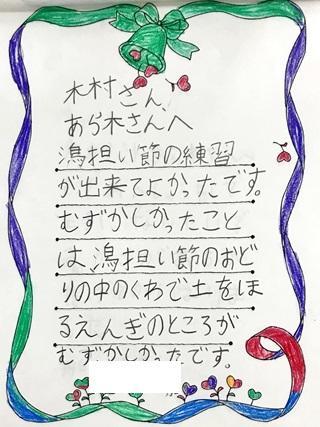 木村さん、
あら木さんへ
潟担い節の練習
が出来てよかったです。
むずかしかったこと
は、潟担い節のおど
りの中のくわで土をほ
るえんぎのところが
むずかしかったです。